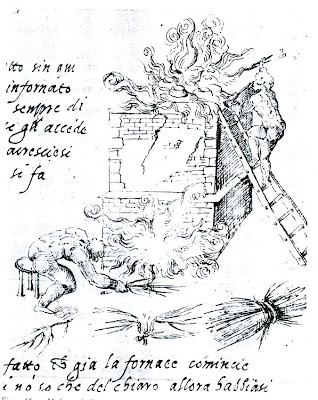 tto sin qui
infornato
sempre di
gli accede
si fa
fatto & gia la fornace comincie
i nō so che del chiaro allora habbinsi